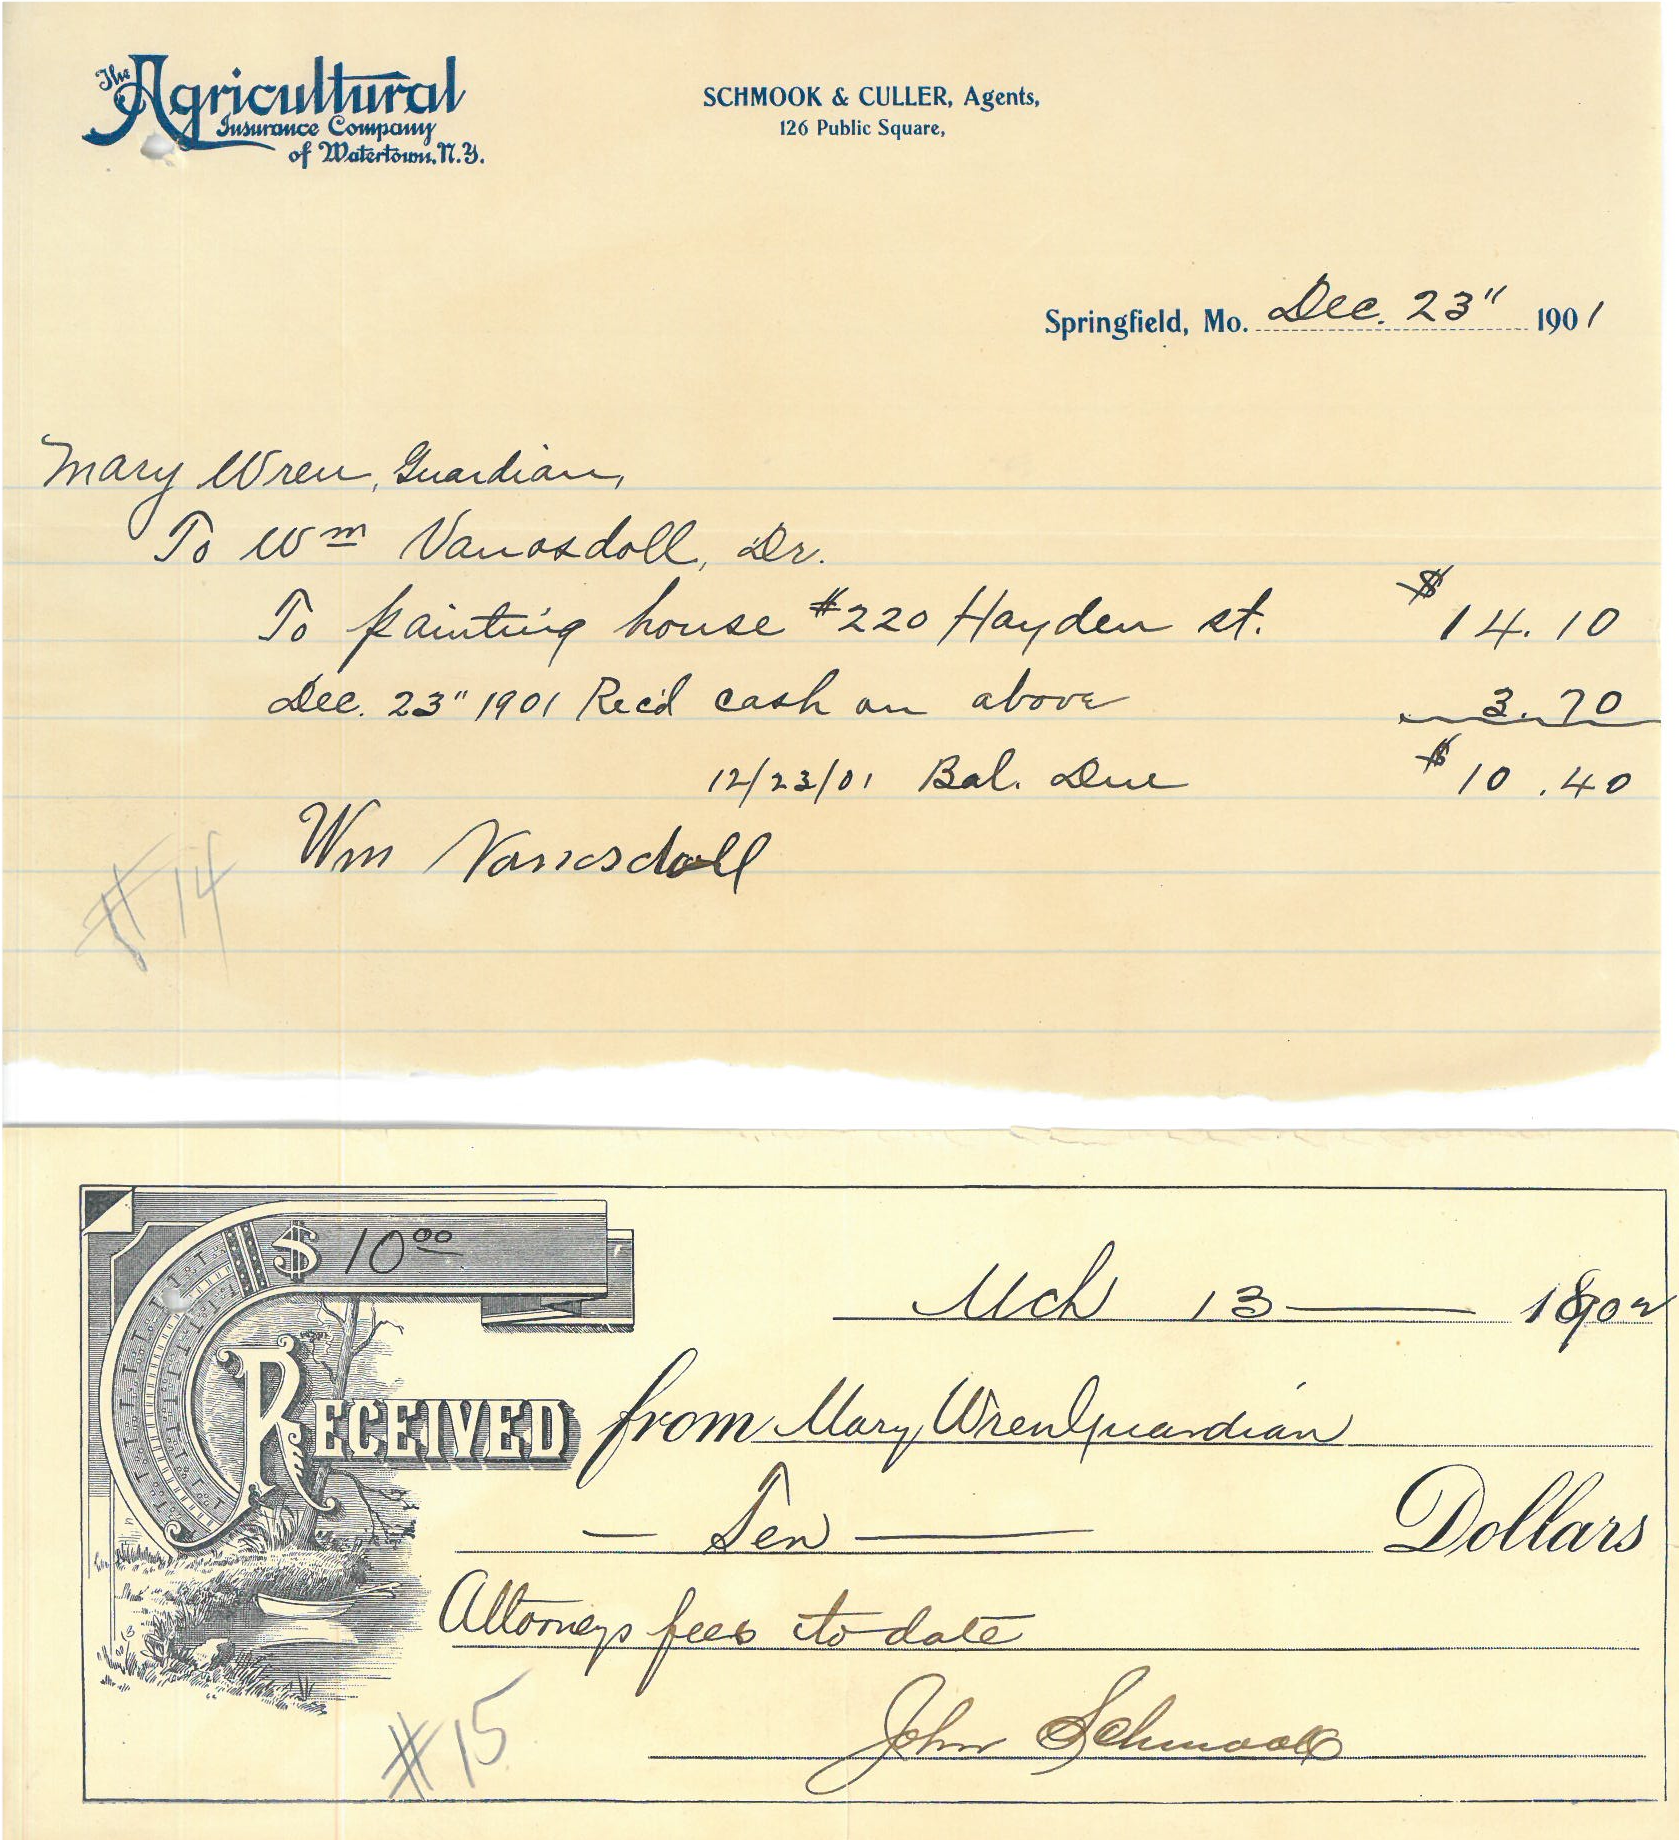 The Agricultural
Insurance Company
of Watertown, N.Y.
SCHMOOK & CULLER, Agents,
126 Public Square,
Springfield, Mo. Dec. 23" 1901
Mary Wren, Guardian,
To Wm Vanosdoll, Dr.
To painting house #220 Hayden st. $14.10
Dec. 23" 1901 Rec'd cash on above 3.70
12/23/01 Bal. Due $10.40
Wm Vanosdoll
#14
$ 10 00
Mch 13 — 1902
RECEIVED from Mary Wren Guardian
— Ten — Dollars
Attorneys fees to date
John Schmook
#15